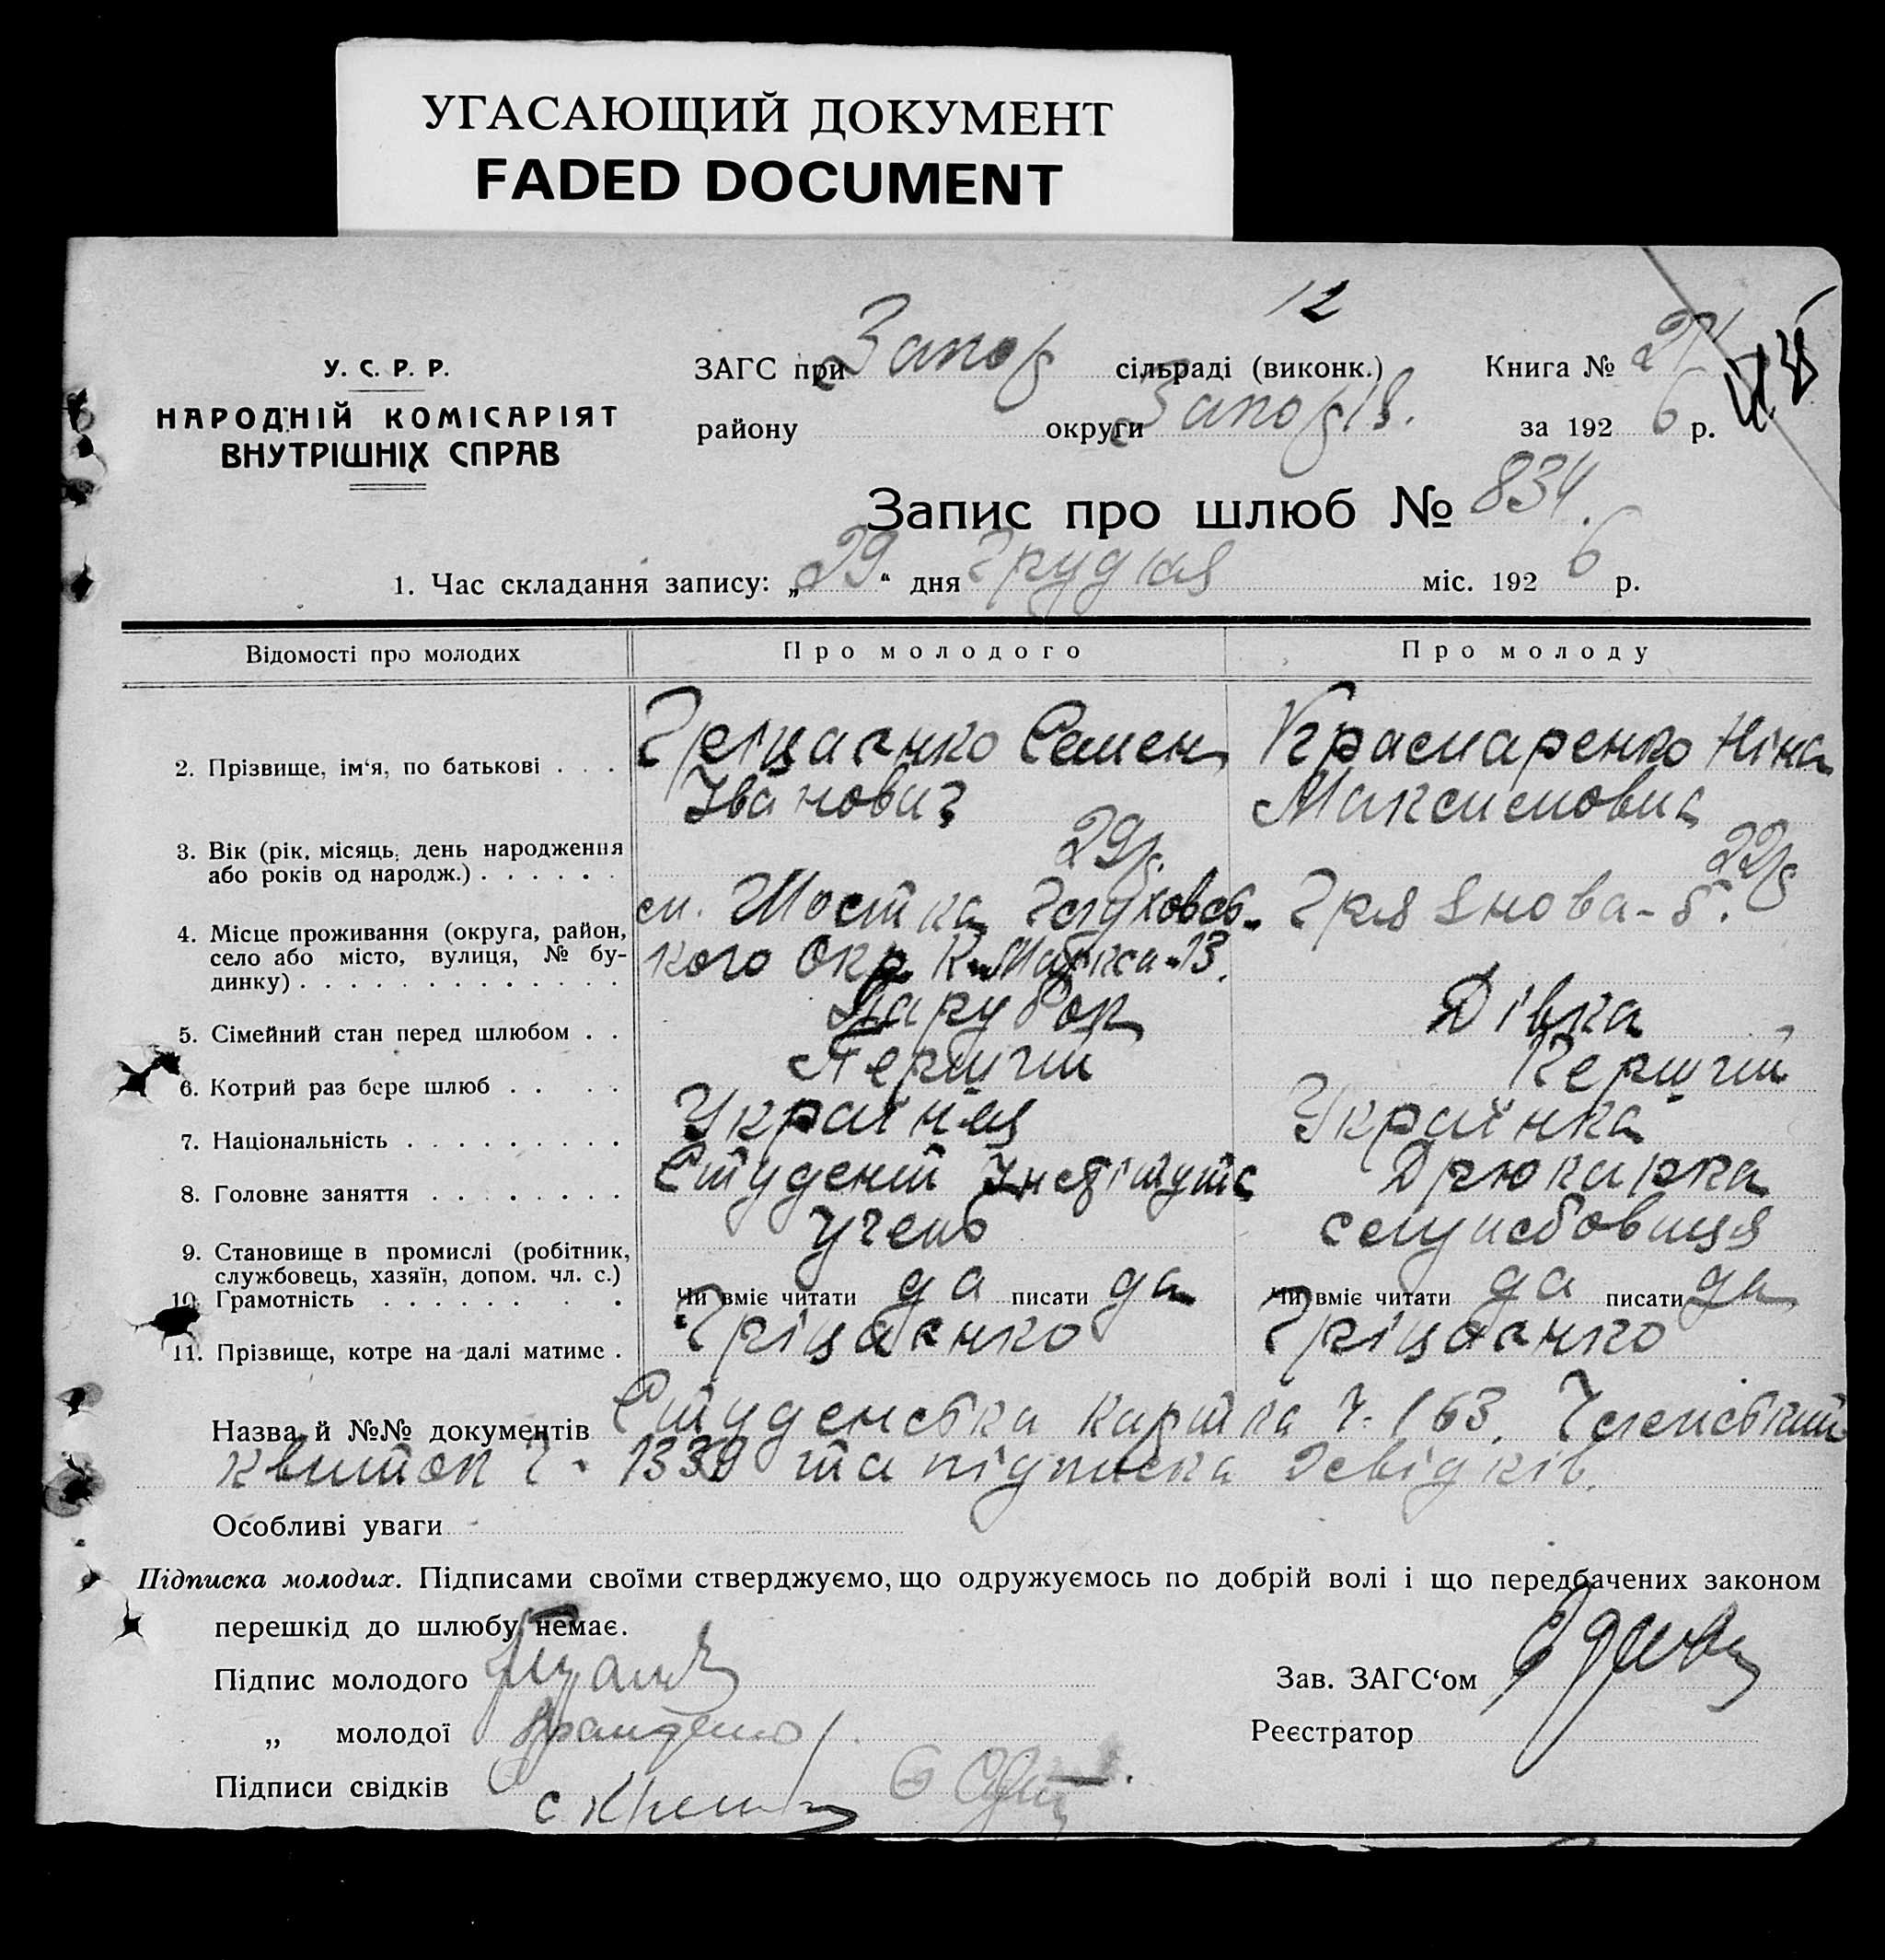 УГАСАЮЩИЙ ДОКУМЕНТ
FADED DOCUMENT
12
У. С. Р. Р.
НАРОДНІЙ КОМІСАРІЯТ
ВНУТРІШНІХ СПРАВ
ЗАГС при Запор сільраді (виконк.) Книга №
району округи Запоріз. за 1926 р.
Запис про шлюб № 834.
1. Час складання запису: „29“ дня Грудня міс. 1926 р.
Відомості про молодих Про молодого Про молоду
2. Прізвище, ім‘я, по батькові . . . Гріцаєнко Семен Красмаренко Ніна
Іванович Максимовна
3. Вік (рік, місяць, день народження 29р. 22р
або років од народж.) . . . . . .
4. Місце проживання (округа, район, см. Шостка Глуховсь- Грязнова-5.
село або місто, вулиця, № бу- кого Окр. 13.
динку) . . . . . . . . . . . .
5. Сімейний стан перед шлюбом . . Парубок Дівка
6. Котрий раз бере шлюб . . . . Першгий Першгий
7. Національність . . . . . . . . . Українец Українка
8. Головне заняття . . . . . . . . Студент Інстітута Дрюкарка
9. Становище в промислі (робітник, учень служобовиця
службовець, хазяїн, допом. чл. с.)
10. Грамотність . . . . . . . . Чи вміє читати да писати да Чи вміє читати да писати да
11. Прізвище, котре на далі матиме . Гріцаєнко Гріцаєнко
Назва й №№ документів Студенська картка Ч. 163. Членський
квиток Ч. 1339 та підписка свідків.
Особливі уваги
Підписка молодих. Підписами своїми стверджуємо, що одружуємось по добрій волі і що передбачених законом
перешкід до шлюбу немає.
Підпис молодого Зав. ЗАГС‘ом
„ молодої Реєстратор
Підписи свідків